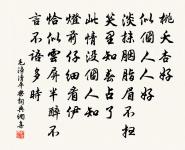 桃夭杏好
似個人人好
淡抹胭脂眉不掃
笑裏知春占了
此情沒個人知
燈前仔細看伊
恰似雲屏半醉不
言不語多時
毛滂清平樂